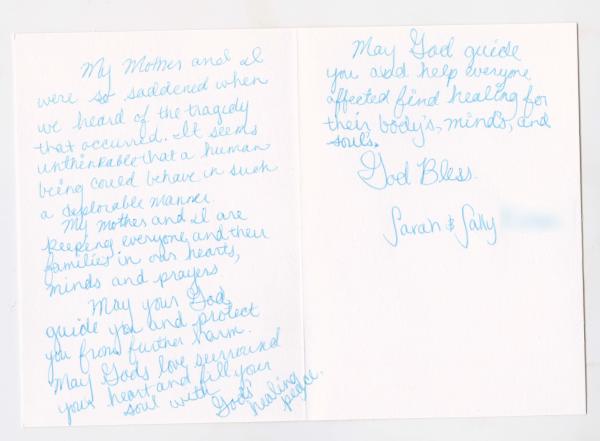 My Mother and I
were so saddened when
we heard of the tragedy
that occurred. It seems
unthinkable that a human
being could behave in such
a deplorable manner.
My mother and I are
keeping everyone and their
families in our hearts,
minds and prayers
May your God
guide you and protect
you from further harm.
May Gods love surround
your heart and fill your
soul with Gods'
healing
peace.
May God guide
you and help everyone
affected find healing for
their body's, mind's, and
soul's.
God Bless.
Sarah & Sally